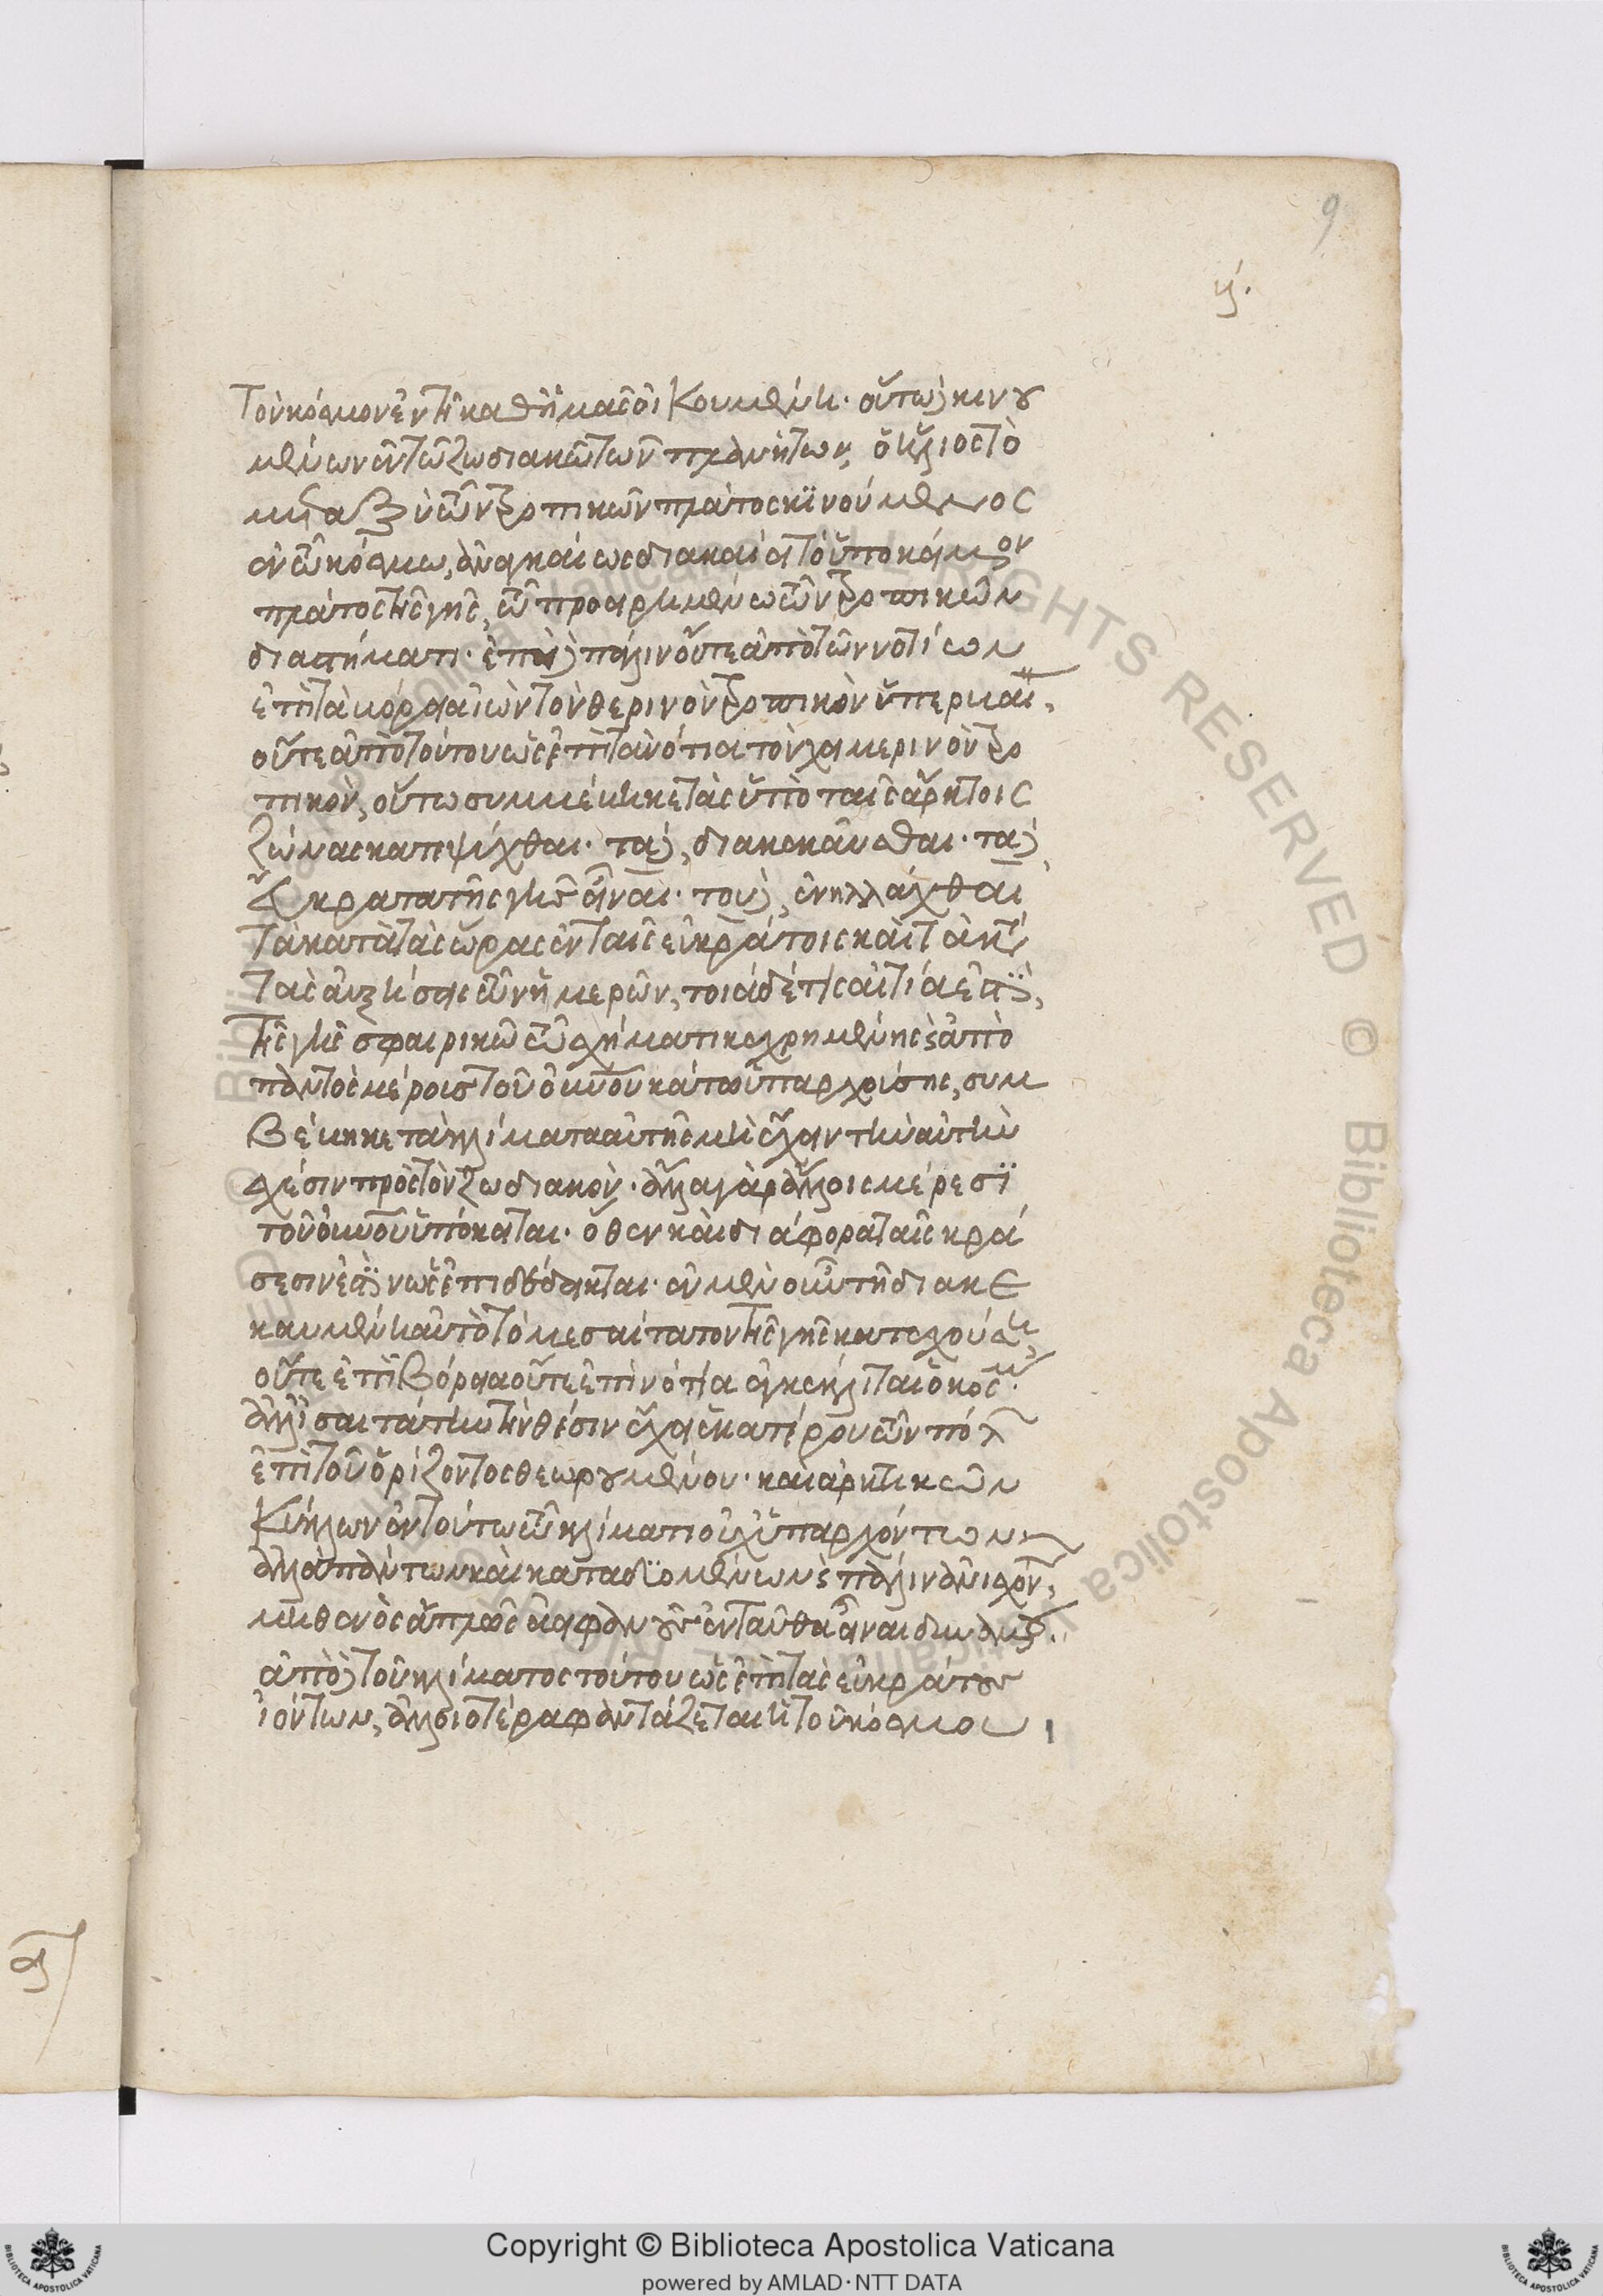 9
η.
τὸν κόσμον ἐν τῇ καθ' ἡμᾶς οἰκουμένῃ. οὕτω δὲ κινου
μένων ἐν τῷ ζωδιακῷ τῶν πλανήτων, ὁ ἥλιος τὸ
μεταξὺ τῶν τροπικῶν πλάτος κινούμενος
ἐν τῷ κόσμῳ, ἀναγκαίως διακαίει τὸ ὑποκείμενον
πλάτος τῆς γῆς, τῷ προειρημένῳ τῶν τροπικῶν
διαστήματι. ἐπεὶ δὲ πάλιν οὔτε ἀπὸ τῶν νοτίων
ἐπὶ τὰ βόρεια ἰὼν τὸν θερινὸν τροπικὸν ὑπερβαίνει,
οὔτε ἀπὸ τούτου ὡς ἐπὶ τὰ νότια τὸν χειμερινὸν τρο
πικὸν, οὕτω συμβέβηκε τὰς ὑπὸ ταῖς ἄρκτοις
ζώνας κατεψύχθαι. τὰς δὲ διακεκαῦσθαι. τὰς δὲ
εὔκρατα τῆς γῆς εἶναι. τοὺς δὲ ἐνηλλάχθαι
τὰ κατὰ τὰς ὥρας ἐν ταῖς εὐκράτοις καὶ τὰ κατὰ
τὰς αὐξήσεις τῶν ἡμερῶν, τοιάδε τις αἰτία ἐστὶ,
τῆς γῆς σφαιρικῷ τῷ σχήματι κεχρημένης καὶ ἀπὸ
παντὸς μέρους τοῦ οὐρανοῦ κάτω ὑπαρχούσης, συμ
βέβηκε τὰ κλίματα αὐτῆς μὴ ἔχειν τὴν αὐτὴν
σχέσιν πρὸς τὸν ζωδιακόν. ἄλλα γὰρ ἄλλοις μέρεσι
τοῦ οὐρανοῦ ὑπόκειται. ὅθεν καὶ διάφορα ταῖς κρά
σεσιν ἐστὶν ὡς ἐπιδέδεικται. ἐν μὲν οὖν τῇ διακε
καυμένῃ αὐτὸ τὸ μεσαίτατον τῆς γῆς κατεχούσῃ,
οὔτε ἐπὶ βόρεια οὔτε ἐπὶ νότια ἐγκέκλιται ὁ κόσμος.
ἀλλ' ἰσαιτάτην τὴν θέσιν ἔχει ἑκατέρου τῶν πόλων
ἐπὶ τοῦ ὁρίζοντος θεωρουμένου. καὶ ἀρκτικῶν
κύκλων ἐν τούτῳ τῷ κλίματι οὐχ ὑπαρχόντων
ἀλλὰ πάντων καὶ καταδυομένων καὶ πάλιν ἀνισχόντων,
μηθενὸς ἄστρου ἀειφανοῦς ἐνταῦθα εἶναι δυναμένου.
ἀπὸ δὲ τοῦ κλίματος τούτου ὡς ἐπὶ τὰς εὐκράτους
ἰόντων, ἀλλοιοτέρα φαντάζεται ἡ τοῦ κόσμου
Copyright © Biblioteca Apostolica Vaticana
powered by AMLAD·NTT DATA